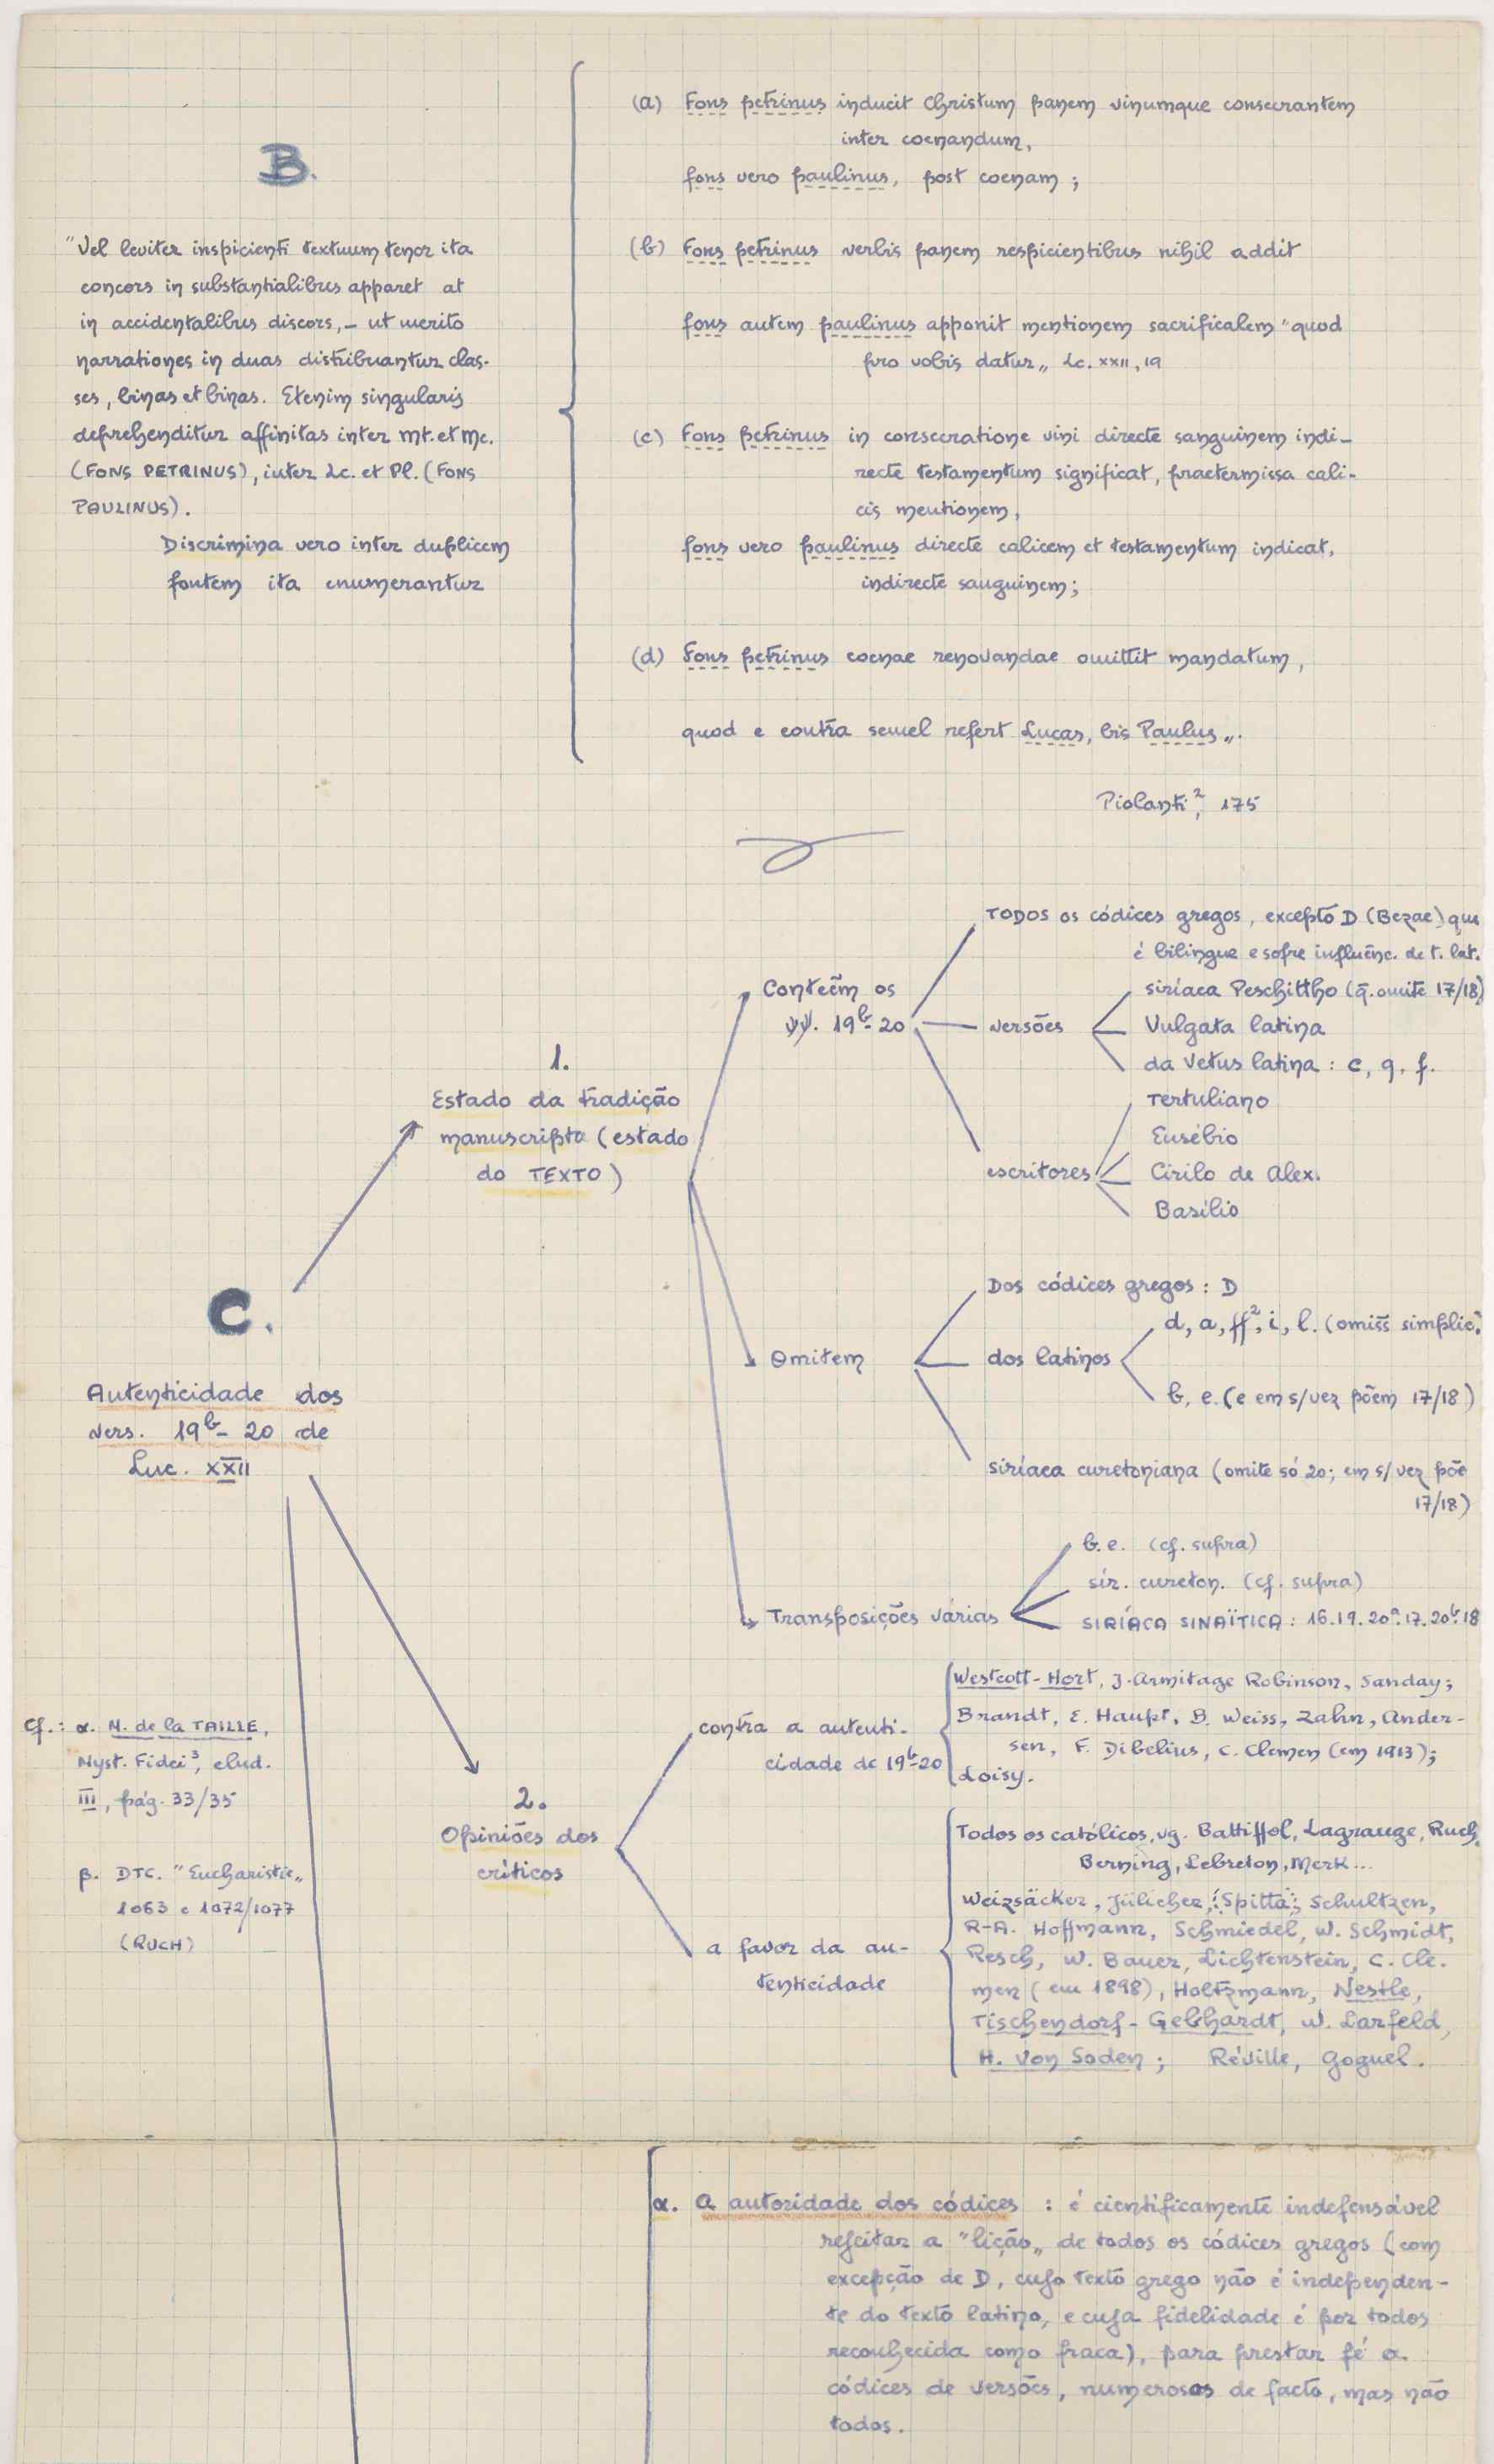 B.
"Vel leviter inspicienti textuum tenor ita
concors in substantialibus apparet at
in accidentalibus discors, – ut merito
narrationes in duas distribuantur clas-
ses, binas et binas. Etenim singularis
deprehenditur affinitas inter Mt. et Mc.
(FONS PETRINUS), inter Lc. et Pl. (FONS
PAULINUS).
Discrimina vero inter duplicem
fontem ita enumerantur
(a) Fons petrinus inducit Christum panem vinumque consecrantem
inter coenandum,
fons vero paulinus, post coenam;
(b) Fons petrinus verbis panem respicientibus nihil addit
fons autem paulinus apponit mentionem sacrificalem "quod
pro vobis datur„ Lc. XXII, 19
(c) Fons petrinus in consecratione vini directe sanguinem indi-
recte testamentum significat, praetermissa cali-
cis mentionem,
fons vero paulinus directe calicem et testamentum indicat,
indirecte sanguinem;
(d) Fons petrinus coenae renovandae omittit mandatum,
quod e contra semel refert Lucas, bis Paulus„.
Piolanti², 175
C.
Autenticidade dos
vers. 19ᵇ- 20 de
Luc. XXII
1.
Estado da tradição
manuscripta (estado
do TEXTO)
Conteẽm os
℣℣. 19ᵇ- 20
TODOS os códices gregos, excepto D (Bezae) que
é bilingue e sofre influênc. de t. lat.
versões
siríaca Peschittho (q̄. omite 17/18)
Vulgata latina
da Vetus latina : c, q. f.
escritores
Tertuliano
Eusébio
Cirilo de Alex.
Basílio
Omitem
Dos códices gregos : D
dos latinos
d, a, ff², i, l. (omiss̄ simplic.)
b, e. (e em s/vez põem 17/18)
siríaca curetoniana (omite só 20; em s/ vez põe
17/18)
Transposições várias
b. e. (cf. supra)
sir. cureton. (cf. supra)
SIRÍACA SINAÏTICA : 16.19.20ª.17.20ᵇ.18
Cf. : α. M. de la TAILLE,
Myst. Fidei³, elud.
III, pág. 33/35
β. DTC. "Eucharistie„
1063 e 1072/1077
(RUCH)
2.
Opiniões dos
críticos
contra a autenti-
cidade de 19ᵇ-20
Westcott-Hort, J. Armitage Robinson, Sanday;
Brandt, E. Haupt, B. Weiss, Zahn, Ander-
sen, F. Dibelius, C. Clemen (em 1913);
Loisy.
a favor da au-
tenticidade
Todos os católicos, vg. Battiffol, Lagrange, Ruch,
Berning, Lebreton, Merk...
Weizsäcker, Jülicher, Spitta; Schultzen,
R-A. Hoffmann, Schmiedel, W. Schmidt,
Resch, W. Bauer, Lichtenstein, C. Cle-
men (em 1898), Holtzmann, Nestle,
Tischendorf - Gebhardt, W. Larfeld,
H. von Soden; Réville, Goguel.
α. A autoridade dos códices : é cientìficamente indefensável
rejeitar a "lição„ de todos os códices gregos (com
excepção de D, cujo texto grego não é independen-
te do texto latino, e cuja fidelidade é por todos
reconhecida como fraca), para prestar fé a
códices de versões, numerosos de facto, mas não
todos.